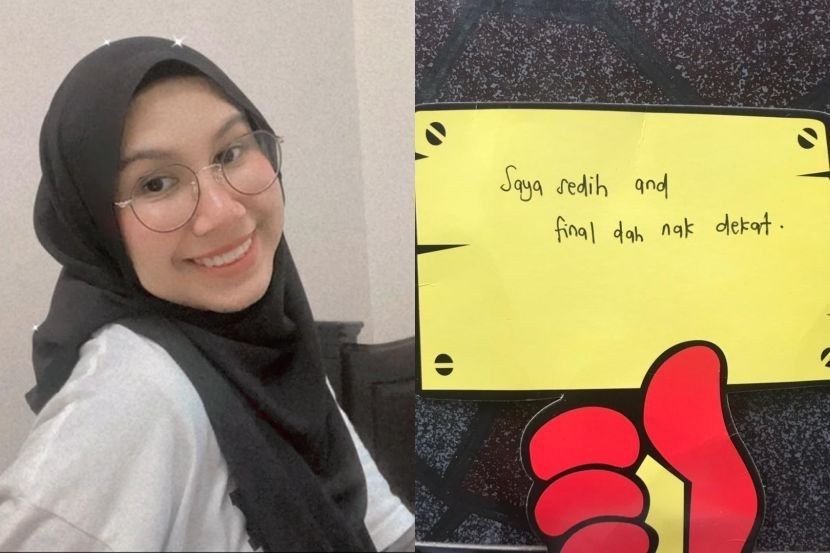 Saya sedih and
final dah nak dekat.